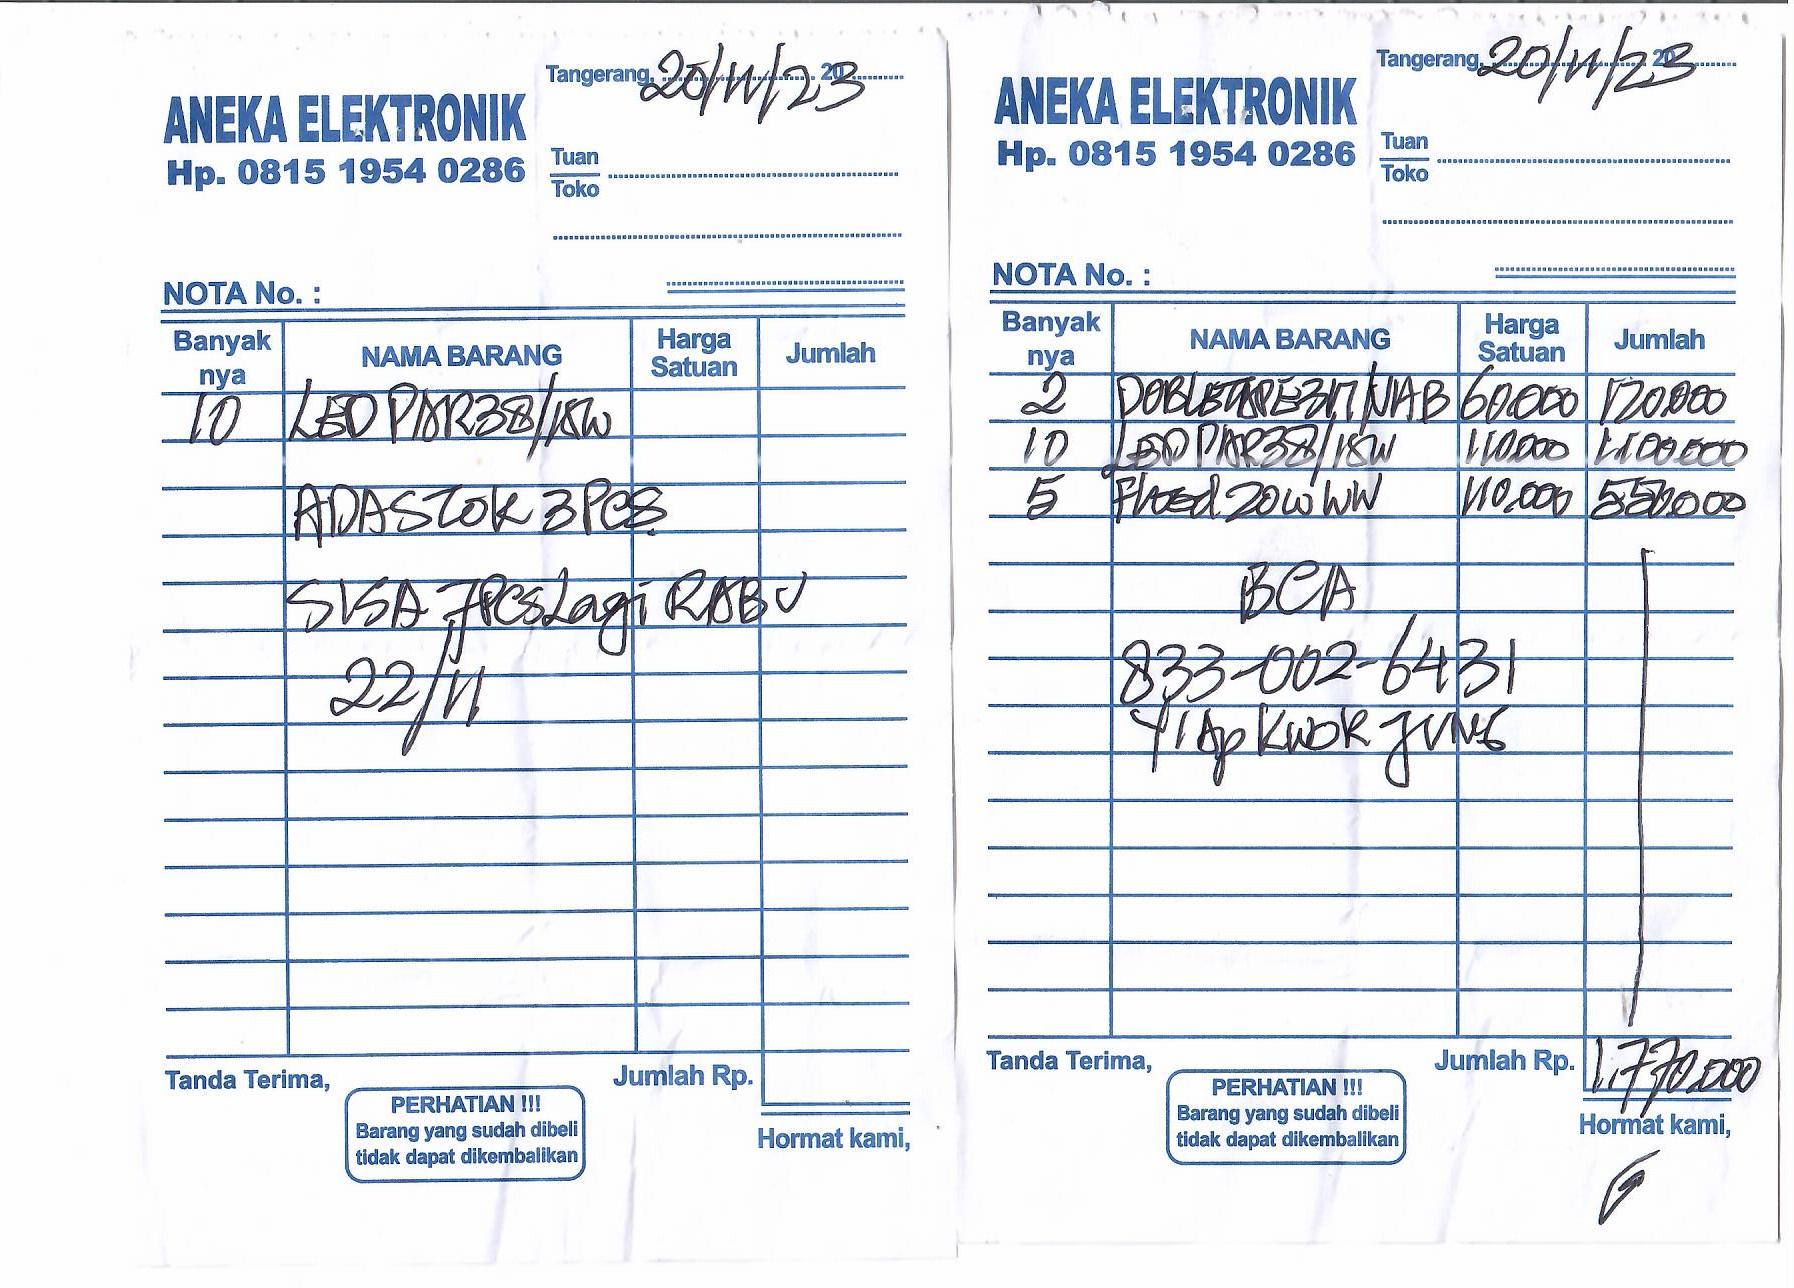 Tangerang, 20/11/23 20
ANEKA ELEKTRONIK
Hp. 0815 1954 0286
Tuan
Toko
NOTA No. :
Banyak nya NAMA BARANG Harga Satuan Jumlah
10 LED PAR38/18W
ADA STOK 3 PCS
SISA 7PCS Lagi RABU
22/11
Tanda Terima, Jumlah Rp.
PERHATIAN !!!
Barang yang sudah dibeli
tidak dapat dikembalikan
Hormat kami,
Tangerang, 20/11/23 20
ANEKA ELEKTRONIK
Hp. 0815 1954 0286
Tuan
Toko
NOTA No. :
Banyak nya NAMA BARANG Harga Satuan Jumlah
2 DOBLETAPE 3M/NAB 60.000 120.000
10 LED PAR38/18W 110.000 1.100.000
5 Flood 20W WW 110.000 550.000
BCA
833-002-6431
YIAP KWOK JUNG
Tanda Terima, Jumlah Rp. 1.770.000
PERHATIAN !!!
Barang yang sudah dibeli
tidak dapat dikembalikan
Hormat kami,